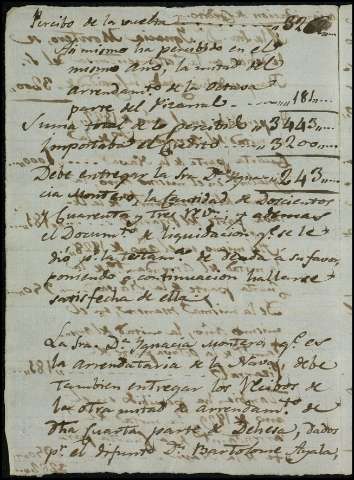 Percibo de la vuelta 3262
Asi mismo ha percibido en el
mismo año la mitad del
arrendamto de la octava
parte del Pizarral 181
Suma total de lo percibido 3443
Importaba el Credito 3200
Debe entregar la Sra. Da. Igna- 243
cia Montero, la Cantidad de Doscientos
y Cuarenta y tres Rs. vn. y ademas
el Documto. de liquidacion qe. se le
dio pr. la testamta. de deuda á su favor,
poniendo á continuacion hallarse
satisfecha de ella
La Sra. Da. Ignacia Montero, qe. es
la arrendataria de la Nava, debe
tambien entregar los Recibos de
la otra mitad de arrendamto. de
dha Cuarta parte de Dehesa, dados
pr. el difunto Dn. Bartolome Ayala,